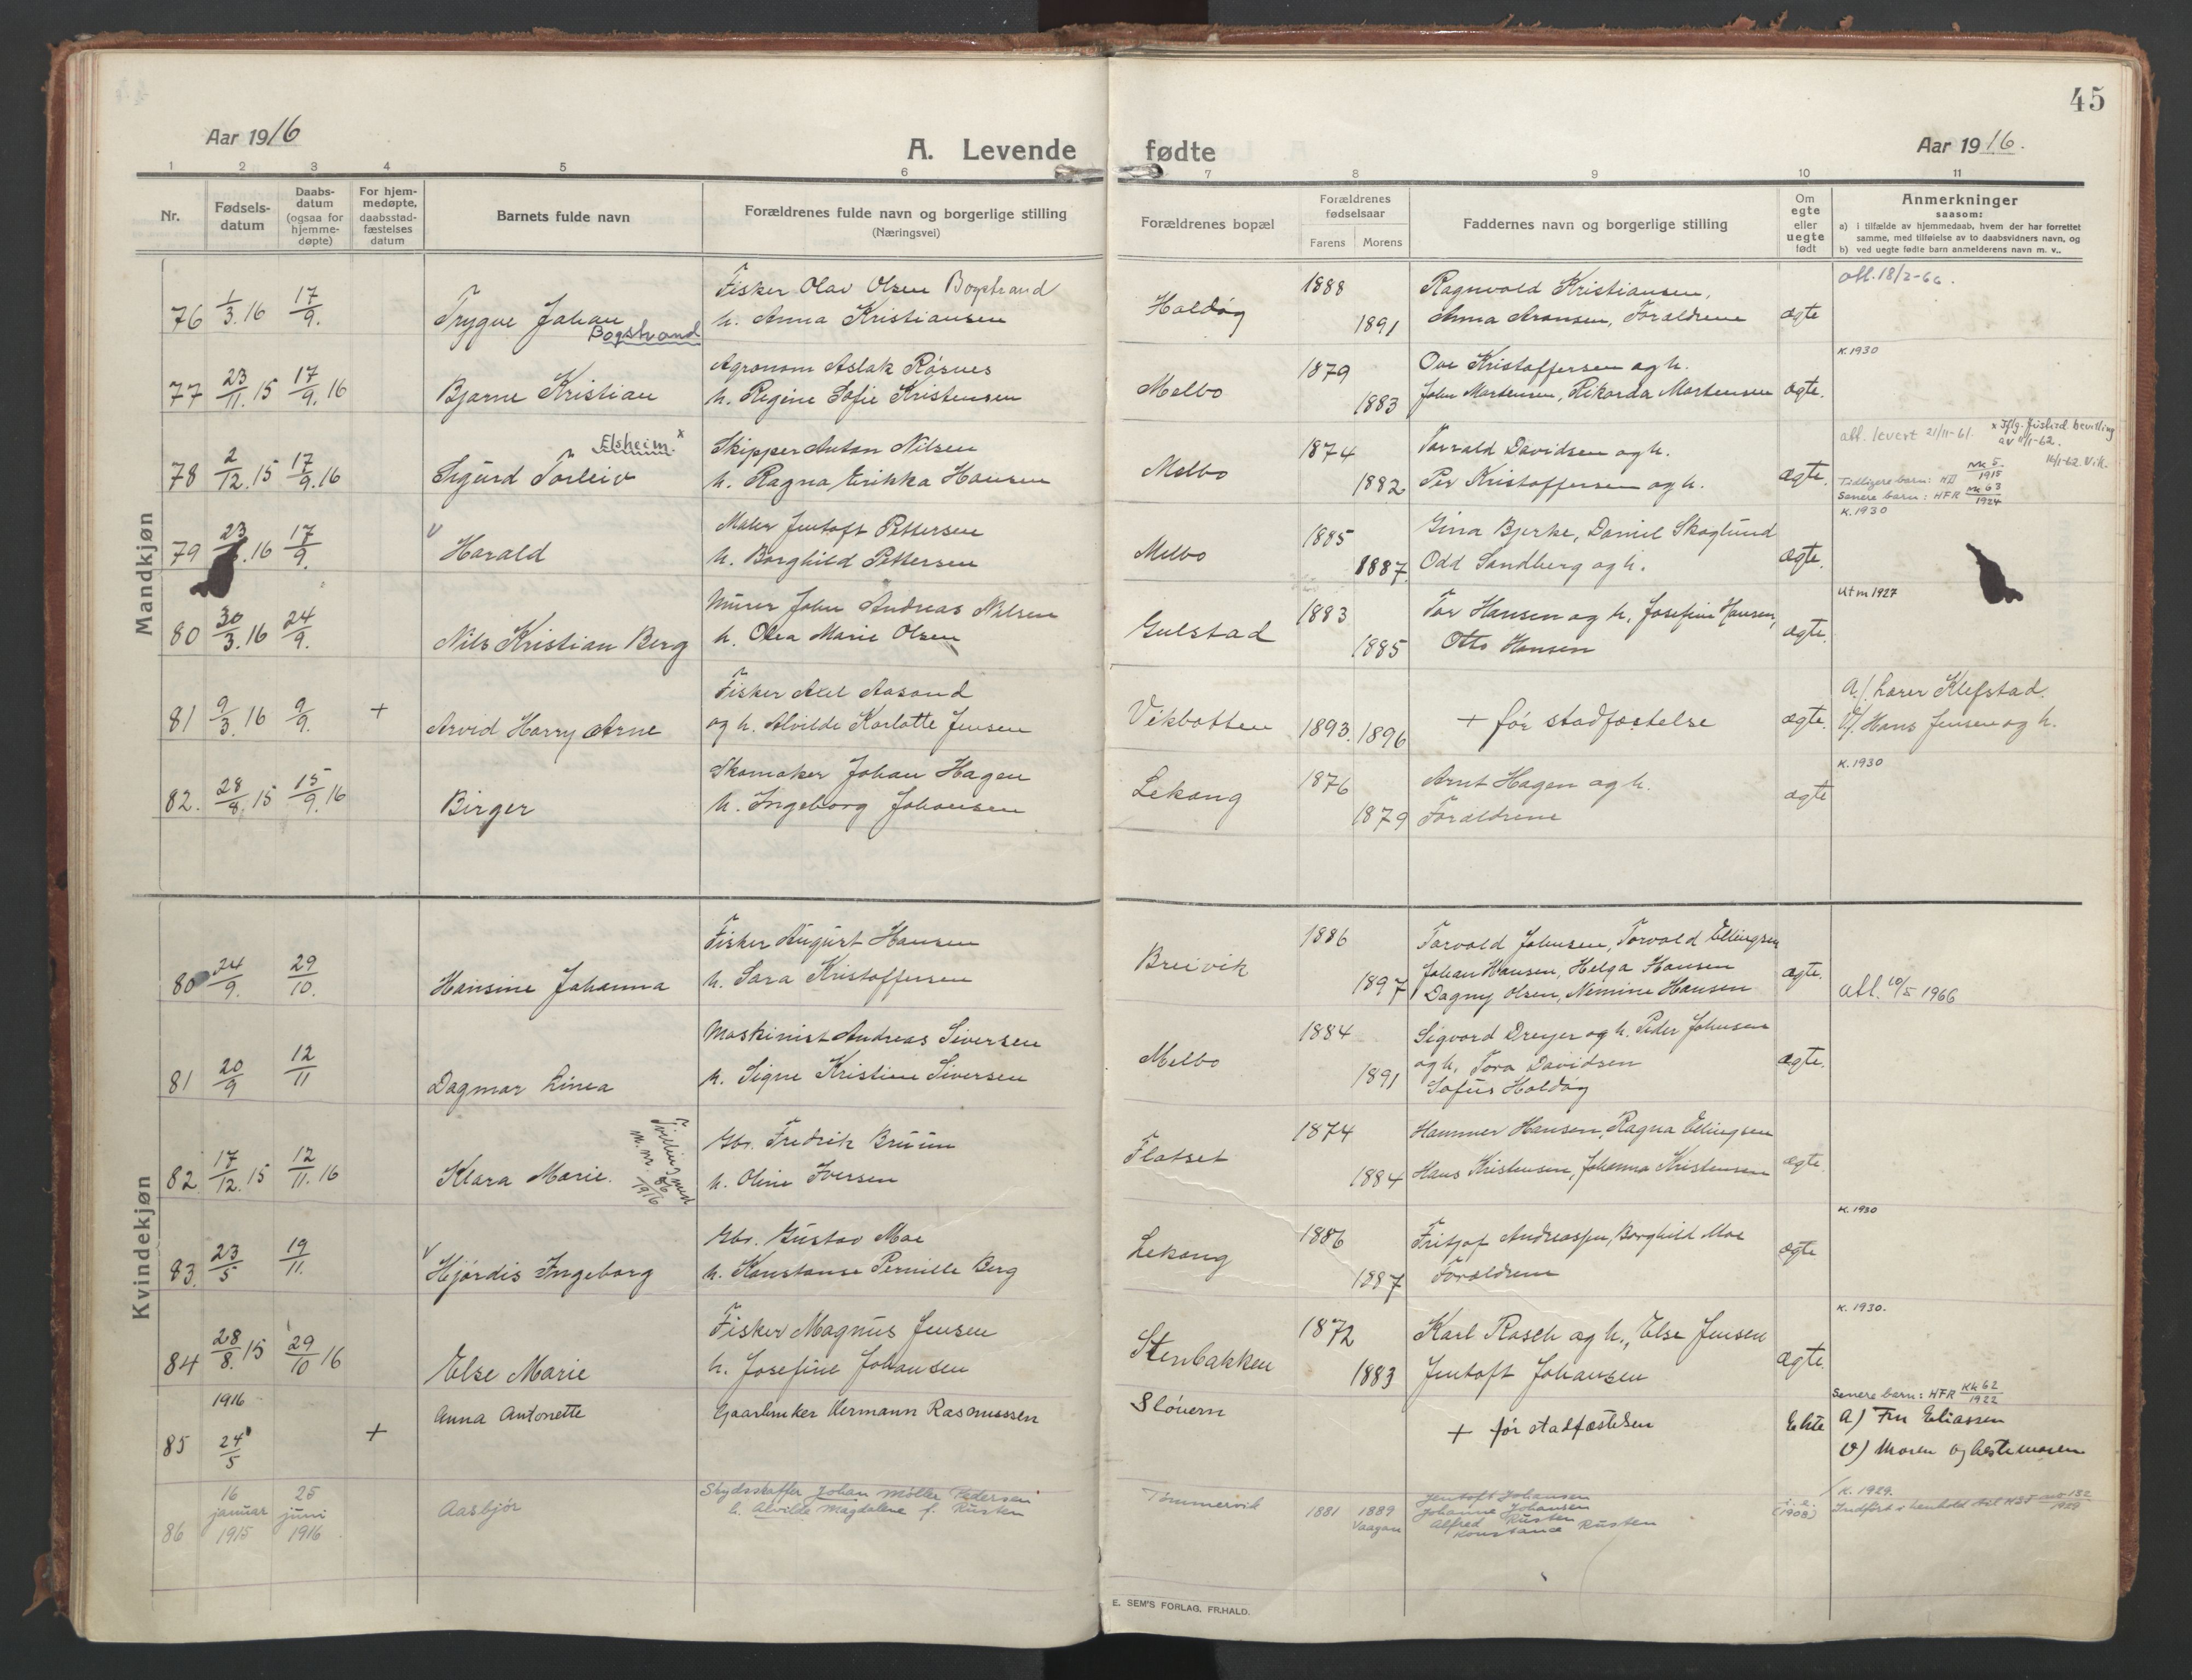 45
Aar 1916
A. Levende fødte
Aar 1916.
1 2 3 4 5 6 7 8 9 10 11
Nr.
Fødsels-datum
Daabs-datum (ogsaa for hjemme-døpte)
For hjem-medøpte, daabsstad-fæstelses datum
Barnets fulde navn
Forældrenes fulde navn og borgerlige stilling
(Næringsvei)
Forældrenes bopæl
Forældrenes fødselsaar
Farens Morens
Faddernes navn og borgerlige stilling
Om egte eller uegte født
Anmerkninger
saasom:
a) i tilfælde av hjemmedaab, hvem der har forrettet
samme, med tilføielse av to daabsvidners navn, og
b) ved uegte fødte barn anmelderens navn m. v..
Mandkjøn
76 1/3.16 17/9. Trygve Johan Bogstrand
Fisker Olav Olsen Bogstrand
h. Anna Kristiansen
Haldøy 1888 1891
Ragnvald Kristiansen,
Anna Aronsen, Forældrene
ægte
att. 18/2-66.
77 23/11.15 17/9.16 Bjarne Kristian
Agronom Aslak Røsnes
h. Regine Sofie Kristensen
Melbo 1879 1883
Ove Kristoffersen og h.
John Martensen, Rikarda Martensen
ægte.
K. 1930
78 2/12.15 17/9.16 Sigurd Torleiv Elsheim x
Skipper Anton Nilsen
h. Ragna Erikka Hansen
Melbo 1874 1882
Torvald Davidsen og h.
Per Kristoffersen og h.
ægte.
att. levert 21/11-61.
x Iflg. bevilling
16/1-62. Vik.
Tidligere barn: Nk 5/1915
Senere barn: HFR Mk 63/1924
K. 1930
79 23/ .16 17/9. v Harald
Maler Jentoft Pettersen
h. Borghild Pettersen
Melbo 1885 1887
Gina Bjerke, Daniel Skoglund
Odd Sandberg og h.
ægte.
80 30/3.16 24/9. Nils Kristian Berg
Murer John Andreas Nilsen
h. Olea Marie Olsen
Gulstad 1883 1885
Tor Hansen og h, Josefine Hansen,
Otto Hansen
ægte.
Utm 1927
81 9/3.16 9/9. + Arvid Harry Arne
Fisker Axel Aasand
og h. Alvilde Karlotte Jensen
Vikbotten 1893. 1896
+ før stadfæstelse
ægte.
a./ Lærer Klefstad.
V/. Hans Jensen og h.
82. 28/8.15 15/9.16 Birger
Skomaker Johan Hagen
h. Ingeborg Johansen
Lekang 1876 1879
Arnt Hagen og h.
Forældrene
ægte
K. 1930
Kvindekjøn
80 24/9. 29/10. Hansine Johanna
Fisker August Hansen
h. Sara Kristoffersen
Breivik 1886 1897
Torvald Johnsen, Torvald Ellingsen
Johan Hansen, Helga Hansen
Dagny Olsen, Nemine Hansen
ægte.
att. 10/5 1966
81 20/9 12/11 Dagmar Linea
Maskinist Andreas Siversen
h. Signe Kristine Siversen
Melbo 1884 1891
Sigvard Dreyer og h. Peder Johnsen
og h, Tora Davidsen
Sofus Haldøy
ægte.
82 17/12.15 12/11.16 Klara Marie. Tvilling med m. nr. 86/1916
Gbr. Fredrik Bruun
h. Oline Iversen
Flatset 1874 1884
Hammer Hansen, Ragna Ellingsen
Hans Kristensen, Johanna Kristensen
ægte.
83. 23/5 19/11. v Hjørdis Ingeborg
Gbr. Gustav Moe
h. Konstanse Pernille Berg
Lekang 1886 1887
Fritjof Andreassen, Borghild Moe
Forældrene
ægte
K. 1930
84 28/8.15 29/10 16 Else Marie
Fisker Magnus Jensen
h. Josefine Johansen
Stenbakken 1872 1883
Karl Rasch og h., Else Jensen
Jentoft Johansen
ægte.
K. 1930.
85 1916 24/5 + Anna Antonette
Gaarbruker Hermann Rasmussen
Slåvern
+ før stadfæstelsen
Ekte
Senere barn: HFR Kk 62/1922
a) Fru Eliassen
v) Moren og bestemoren
86 16 januar 1915 25 juni 1916 Aasbjør
Skydsskaffer Johan Møller Pedersen
h. Alvilde Magdalene f. Rusten
Tømmervik 1881 1889 Vaagan
Jentoft Johansen
Johanne Johansen
Alfred Rusten
Konstance Rusten
(1908)
K. 1929.
Indført i henhold til 132/1929
E. SEM'S FORLAG, FR.HALD.